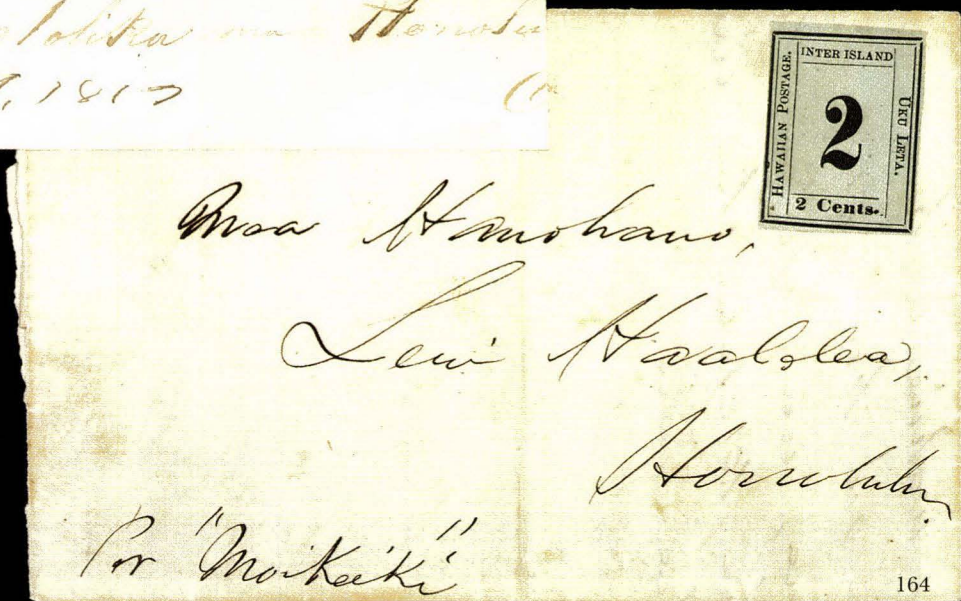 Honolu
INTER ISLAND
HAWAIIAN POSTAGE.
2
UKU LETA.
2 Cents.
Mea Hanohano,
Levi Haalelea,
Honolulu.
Per "Moikeiki"
164